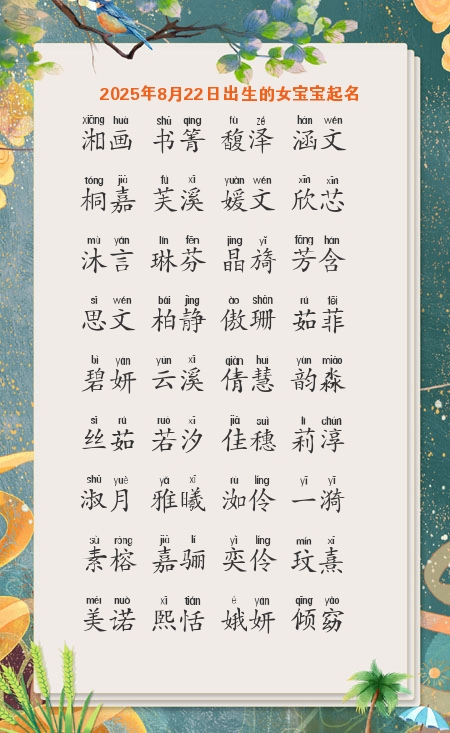 2025年8月22日出生的女宝宝起名
xiāng huà shū qìng fù zé hán wén
湘画 书箐 馥泽 涵文
tóng jiā fú xī yuàn wén xīn xīn
桐嘉 芙溪 媛文 欣芯
mù yán lín fēn jīng yǐ fāng hán
沐言 琳芬 晶旖 芳含
sī wén bǎi jìng ào shān rú fēi
思文 柏静 傲珊 茹菲
bì yán yún xī qiàn huì yùn miǎo
碧妍 云溪 倩慧 韵淼
sī rú ruò xī jiā suì lì chún
丝茹 若汐 佳穗 莉淳
shū yuè yǎ xī rù líng yī yī
淑月 雅曦 洳伶 一漪
sù róng jiā lí yì líng mín xī
素榕 嘉骊 奕伶 玟熹
měi nuò xī tián é yán qīng yǎo
美诺 熙恬 娥妍 倾窈